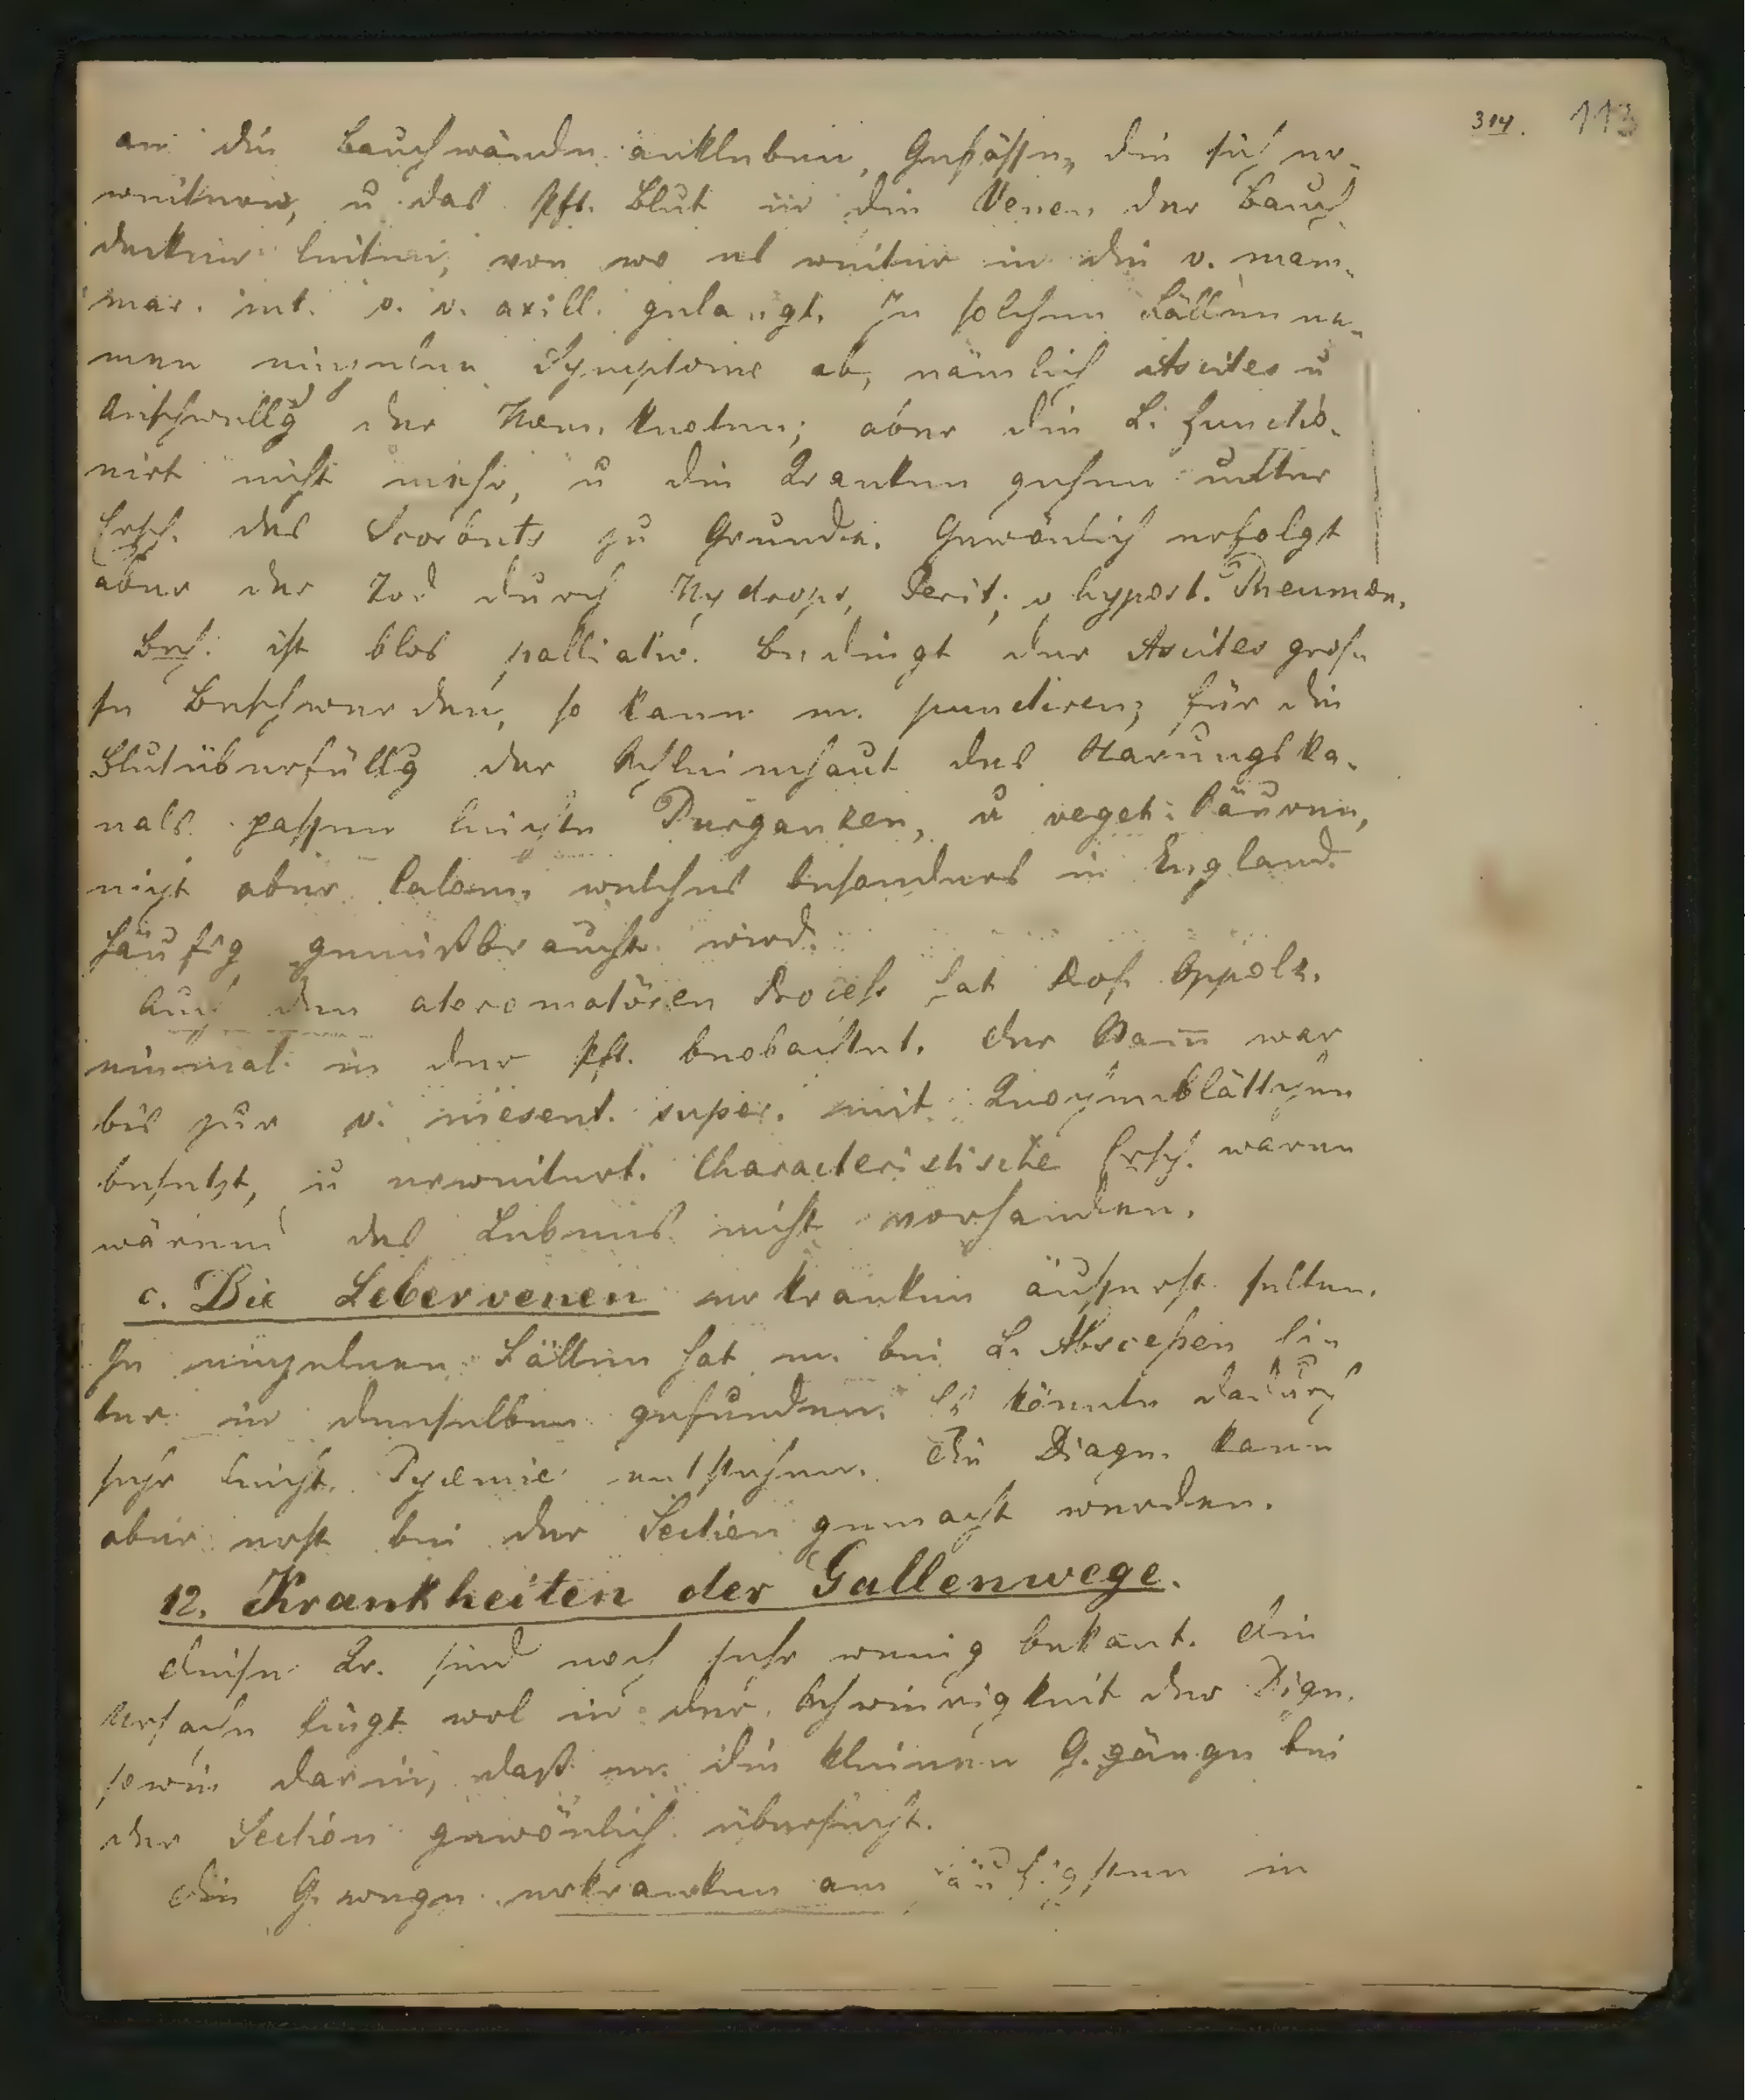 314. 113
an die Bauchwände ankleben, Gefässe, die sich er-
weitern, u das Pft. Blut in die Venen der Bauch
decken leiten, von wo es weiter in die v. mam-
mar. int. o. v. axill. gelangt. In solchen Fällen ne-
men einzelne Symptome ab, nämlich Ascites u
Anschwellg der Hem. knoten; aber die L. functio-
nirt nicht mehr, u die Kranken gehen unter
Ersch. des Scorbuts zu Grunde. Gewönlich erfolgt
aber der Tod durch Hydrops, Perit. o hypost. Pneumon.
Beh: ist blos palliativ. Bedingt der Ascites gros-
se Beschwerden, so kann m. punctiren; für die
Blutüberfüllg der Schleimhaut des Narungska-
nals passen leichte Purganzen, u veget. Säuren,
nicht aber Calom. welches besonders in England
häufig gemißbraucht wird.
Auch den ateromatösen Process hat Prof. Oppolz.
einmal in der Pft. beobachtet. Der Stam̄ war
bis zur v. mesent. super. mit Knochenblättchen
besetzt, u erweitert. Characteristische Ersch. waren
wärend des Lebens nicht vorhanden.
c. Die Lebervenen erkranken äusserst selten.
In einzelnen Fällen hat m. bei L. Abscessen Ei-
ter in denselben gefunden. Es könnte dadurch
sehr leicht Pyæmie entstehen. Die Diagn. kann
aber erst bei der Section gemacht werden.
12. Krankheiten der Gallenwege.
Diese Kr. sind noch sehr wenig bekant. Die
Ursache liegt wol in der Schwierigkeit der Dign.
sowie darin, daß m. die kleinen G. gänge bei
der Section gewönlich übersieht.
Die G. wege erkranken am häufigsten in